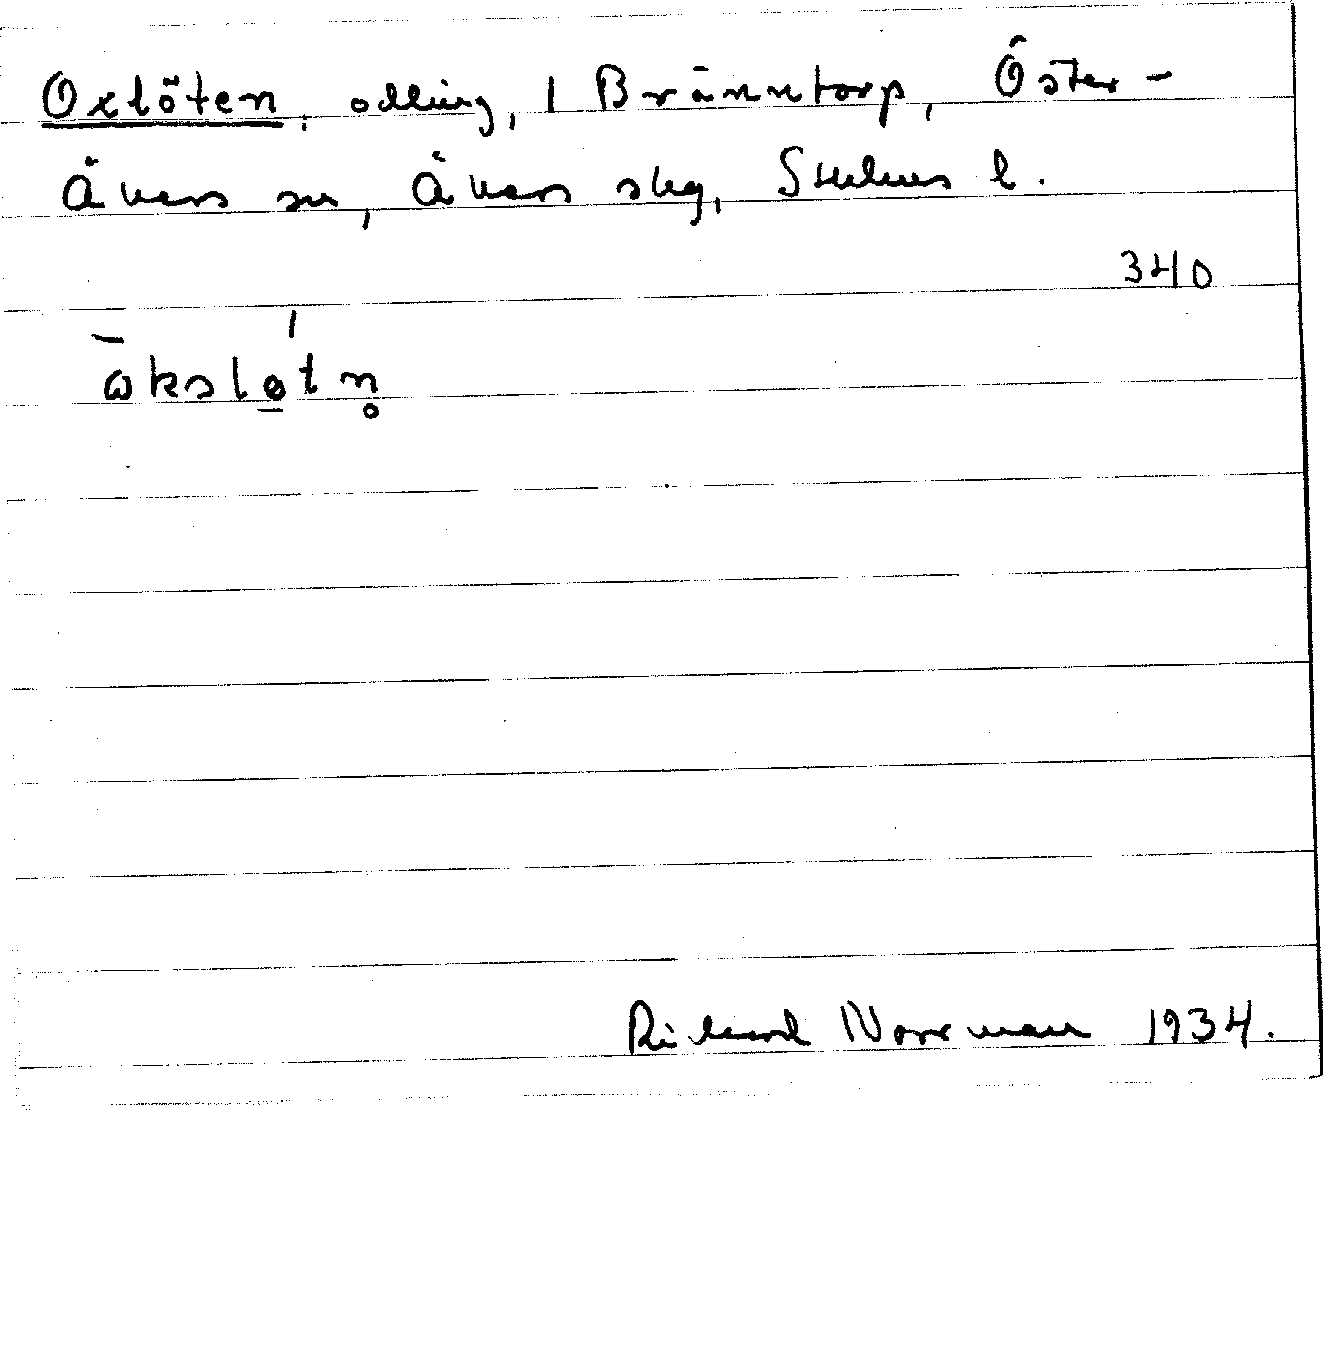 Oxlöten, odling, 1 Bränntorp, Öster-
Åkers sn, Åkers slg, Sthlms l.
340
ωkslo̠tn̥
Rickard Norrman 1934.